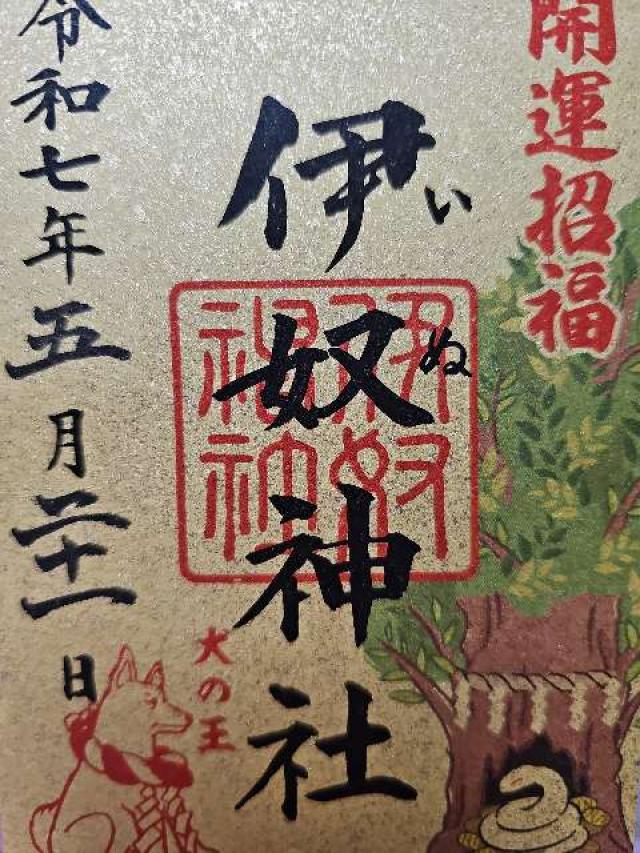 開運招福
伊奴神社
いぬ
伊奴神社
犬の王
令和七年五月二十一日